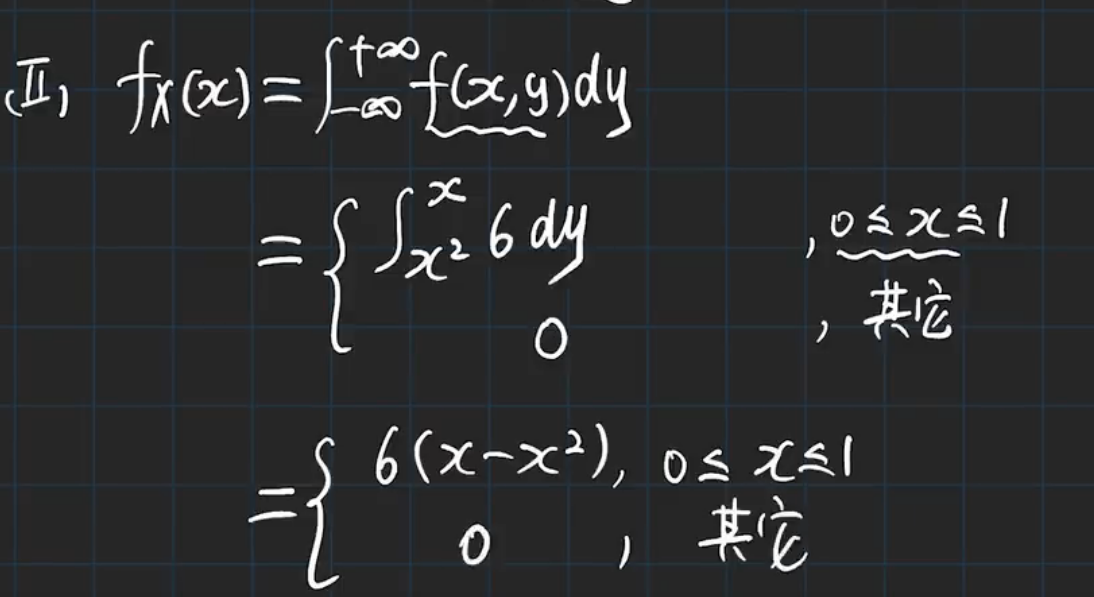 (II) fX(x) = ∫_{-∞}^{+∞} f(x,y)dy
= { ∫_{x²}^{x} 6 dy , 0 ≤ x ≤ 1
0 , 其它
= { 6(x-x²), 0 ≤ x ≤ 1
0 , 其它